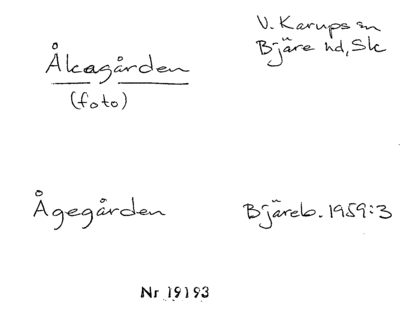 V. Karups sn
Bjäre hd, Sk
Åkagården
(foto)
Ågegården
Bjäreb. 1959:3
Nr 19193